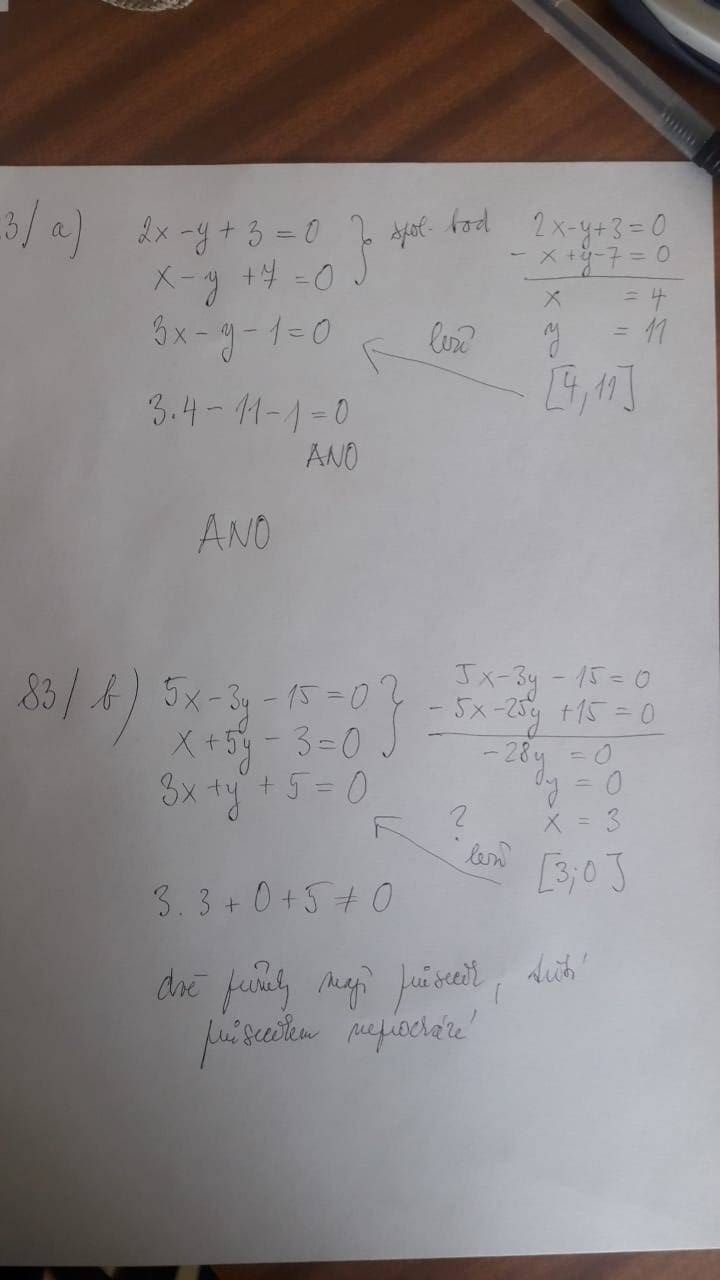 3/ a) 2x - y + 3 = 0 } spol. bod
x - y + 7 = 0
3x - y - 1 = 0
leží
3.4 - 11 - 1 = 0
ANO
ANO
2x - y + 3 = 0
- x + y - 7 = 0
x = 4
y = 11
[4, 11]
83/ b) 5x - 3y - 15 = 0 }
x + 5y - 3 = 0
3x + y + 5 = 0
? leží
3. 3 + 0 + 5 ≠ 0
5x - 3y - 15 = 0
- 5x - 25y + 15 = 0
- 28y = 0
y = 0
x = 3
[3; 0]
dvě přímky mají průsečík, třetí
průsečíkem neprochází